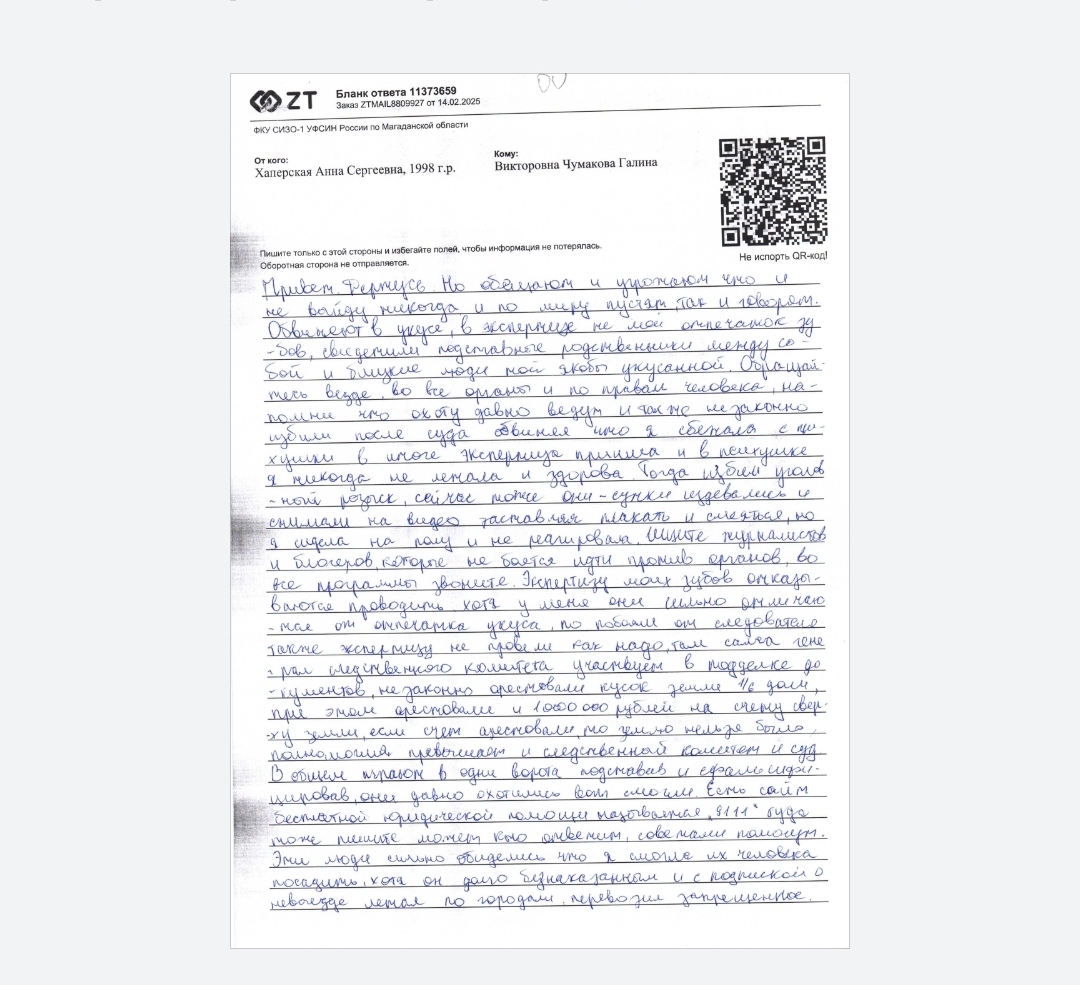 ZT
Бланк ответа 11373659
Заказ ZTMAIL8809927 от 14.02.2025
ФКУ СИЗО-1 УФСИН России по Магаданской области
От кого:
Хаперская Анна Сергеевна, 1998 г.р.
Кому:
Викторовна Чумакова Галина
Пишите только с этой стороны и избегайте полей, чтобы информация не потерялась.
Оборотная сторона не отправляется.
Не испорть QR-код!
Привет. Но обещают и угрожают что и
не выйду никогда и по миру пустят, так и говорят.
Обвиняют в укусе, в экспертизе не мой отпечаток зу
-бов, свидетили подставные родственники между со-
бой и близкие люди той якобы укусанной. Обращай-
тесь везде, во все органы и по правам человека, на-
помни что охоту давно ведут и также незаконно
избили после суда обвиняя что я сбежала с пси-
хушки в итоге экспертиза пришла и в психушке
я никогда не лежала и здорова. Тогда избил уголов
-ный розыск, сейчас тоже они - сутки издевались и
снимали на видео заставляя плакать и смеяться, но
я сидела на полу и не реагировала. Ищите журналистов
и блогеров, которые не боятся идти против органов, во
все программы звоните. Экспертизу моих зубов отказы-
ваются проводить хотя у меня они сильно отличаю
-тся от отпечатка укуса, по побоям от следователя
также экспертизу не провели как надо, там сама гене
-рал следственного комитета участвует в подделке до
-кументов, незаконно арестовали кусок земли 1/6 доли,
при этом арестовали и 1000000 рублей на счету свер-
-ху земли, если счет арестовали, то землю нельзя было,
полномочия превышает и следственный комитет и суд
В общем играют в одни ворота подставив и сфальсифи-
цировав, они давно охотились вот смогли. Есть сайт
бесплатной юридической помощи называется "9111" туда
тоже пишите может кто ответит, советами помогут.
Эти люди сильно обиделись что я смогла их человека
посадить, хотя он долго безнаказанным и с подпиской о
невыезде летал по городам, перевозил запрещенное.